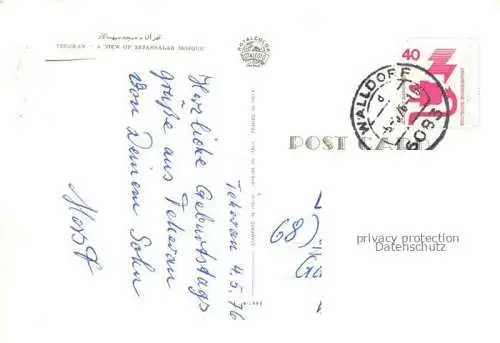 TEHERAN - A VIEW OF SEPAHSALAR MOSQUE
ROYALCOLOR
Teheran 4.5.76
Herzliche Geburtstags
grüße aus Teheran
von Deinem Sohn
Horst
POST CARD
40
DEUTSCHE BUNDESPOST
WALLDORF
6093
68)
privacy protection
Datenschutz